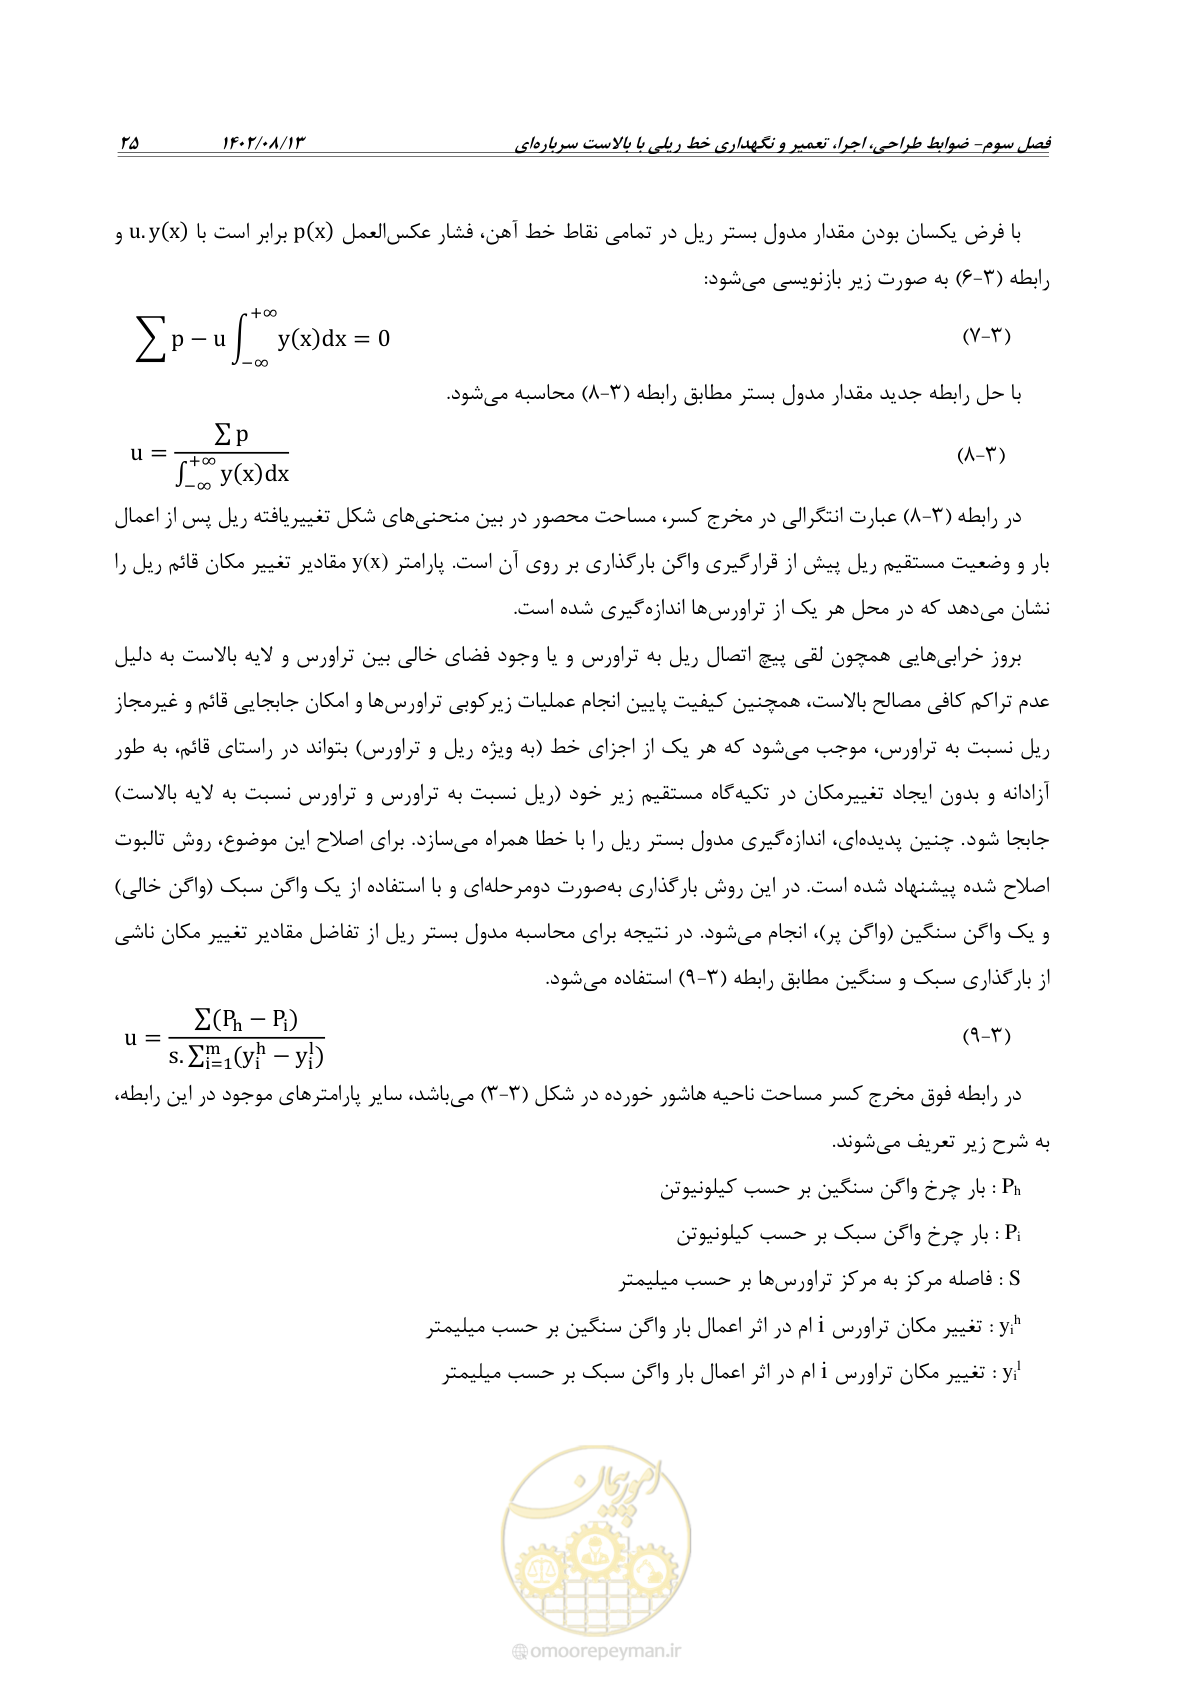 فصل سوم- ضوابط طراحی، اجرا، تعمیر و نگهداری خط ریلی با بالاست سرباره‌ای ۱۴۰۲/۰۸/۱۳ ۲۵
با فرض یکسان بودن مقدار مدول بستر ریل در تمامی نقاط خط آهن، فشار عکس‌العمل p(x) برابر است با u.y(x) و
رابطه (۳-۶) به صورت زیر بازنویسی می‌شود:
∑ p − u ∫_{−∞}^{+∞} y(x)dx = 0 (۳-۷)
با حل رابطه جدید مقدار مدول بستر مطابق رابطه (۳-۸) محاسبه می‌شود.
u = ∑ p / ∫_{−∞}^{+∞} y(x)dx (۳-۸)
در رابطه (۳-۸) عبارت انتگرالی در مخرج کسر، مساحت محصور در بین منحنی‌های شکل تغییریافته ریل پس از اعمال
بار و وضعیت مستقیم ریل پیش از قرارگیری واگن بارگذاری بر روی آن است. پارامتر y(x) مقادیر تغییر مکان قائم ریل را
نشان می‌دهد که در محل هر یک از تراورس‌ها اندازه‌گیری شده است.
بروز خرابی‌هایی همچون لقی پیچ اتصال ریل به تراورس و یا وجود فضای خالی بین تراورس و لایه بالاست به دلیل
عدم تراکم کافی مصالح بالاست، همچنین کیفیت پایین انجام عملیات زیرکوبی تراورس‌ها و امکان جابجایی قائم و غیرمجاز
ریل نسبت به تراورس، موجب می‌شود که هر یک از اجزای خط (به ویژه ریل و تراورس) بتواند در راستای قائم، به طور
آزادانه و بدون ایجاد تغییرمکان در تکیه‌گاه مستقیم زیر خود (ریل نسبت به تراورس و تراورس نسبت به لایه بالاست)
جابجا شود. چنین پدیده‌ای، اندازه‌گیری مدول بستر ریل را با خطا همراه می‌سازد. برای اصلاح این موضوع، روش تالبوت
اصلاح شده پیشنهاد شده است. در این روش بارگذاری به‌صورت دومرحله‌ای و با استفاده از یک واگن سبک (واگن خالی)
و یک واگن سنگین (واگن پر)، انجام می‌شود. در نتیجه برای محاسبه مدول بستر ریل از تفاضل مقادیر تغییر مکان ناشی
از بارگذاری سبک و سنگین مطابق رابطه (۳-۹) استفاده می‌شود.
u = ∑(P_h − P_i) / s.∑_{i=1}^{m}(y_i^h − y_i^l) (۳-۹)
در رابطه فوق مخرج کسر مساحت ناحیه هاشور خورده در شکل (۳-۳) می‌باشد، سایر پارامترهای موجود در این رابطه،
به شرح زیر تعریف می‌شوند.
P_h : بار چرخ واگن سنگین بر حسب کیلونیوتن
P_i : بار چرخ واگن سبک بر حسب کیلونیوتن
S : فاصله مرکز به مرکز تراورس‌ها بر حسب میلیمتر
y_i^h : تغییر مکان تراورس i ام در اثر اعمال بار واگن سنگین بر حسب میلیمتر
y_i^l : تغییر مکان تراورس i ام در اثر اعمال بار واگن سبک بر حسب میلیمتر
امور پیمان
omoorepeyman.ir